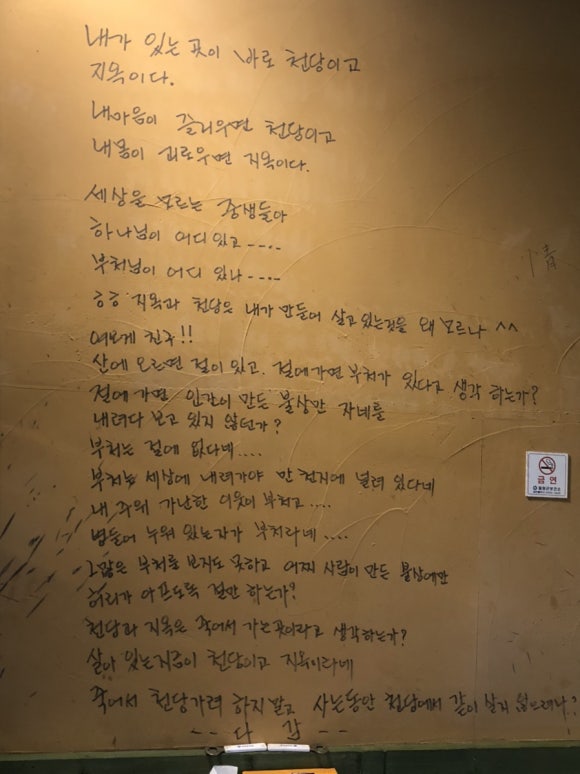 내가 있는 곳이 바로 천당이고
지옥이다.
내마음이 즐거우면 천당이고
내몸이 괴로우면 지옥이다.
세상을 모르는 중생들아
하나님이 어디 있고 ----
부처님이 어디 있나 ----
情
ㅎㅎ 지옥과 천당은 내가 만들어 살고 있는것을 왜 모르나 ^^
여보게 친구!!
산에 오르면 절이 있고. 절에가면 부처가 있다고 생각 하는가?
절에 가면 인간이 만든 불상만 자네를
내려다 보고 있지 않던가?
부처는 절에 없다네....
부처는 세상에 내려가야 만 천지에 널려 있다네
내 주위 가난한 이웃이 부처고....
병들어 누워 있는자가 부처라네....
그많은 부처를 보지도 못하고 어찌 사람이 만든 불상에만
허리가 아프도록 절만 하는가?
천당과 지옥은 죽어서 가는곳이라고 생각하는가?
살아 있는지금이 천당이고 지옥이라네
죽어서 천당가려 하지말고 사는동안 천당에서 같이 살지 않으려나?
-- 다 감 --
금연